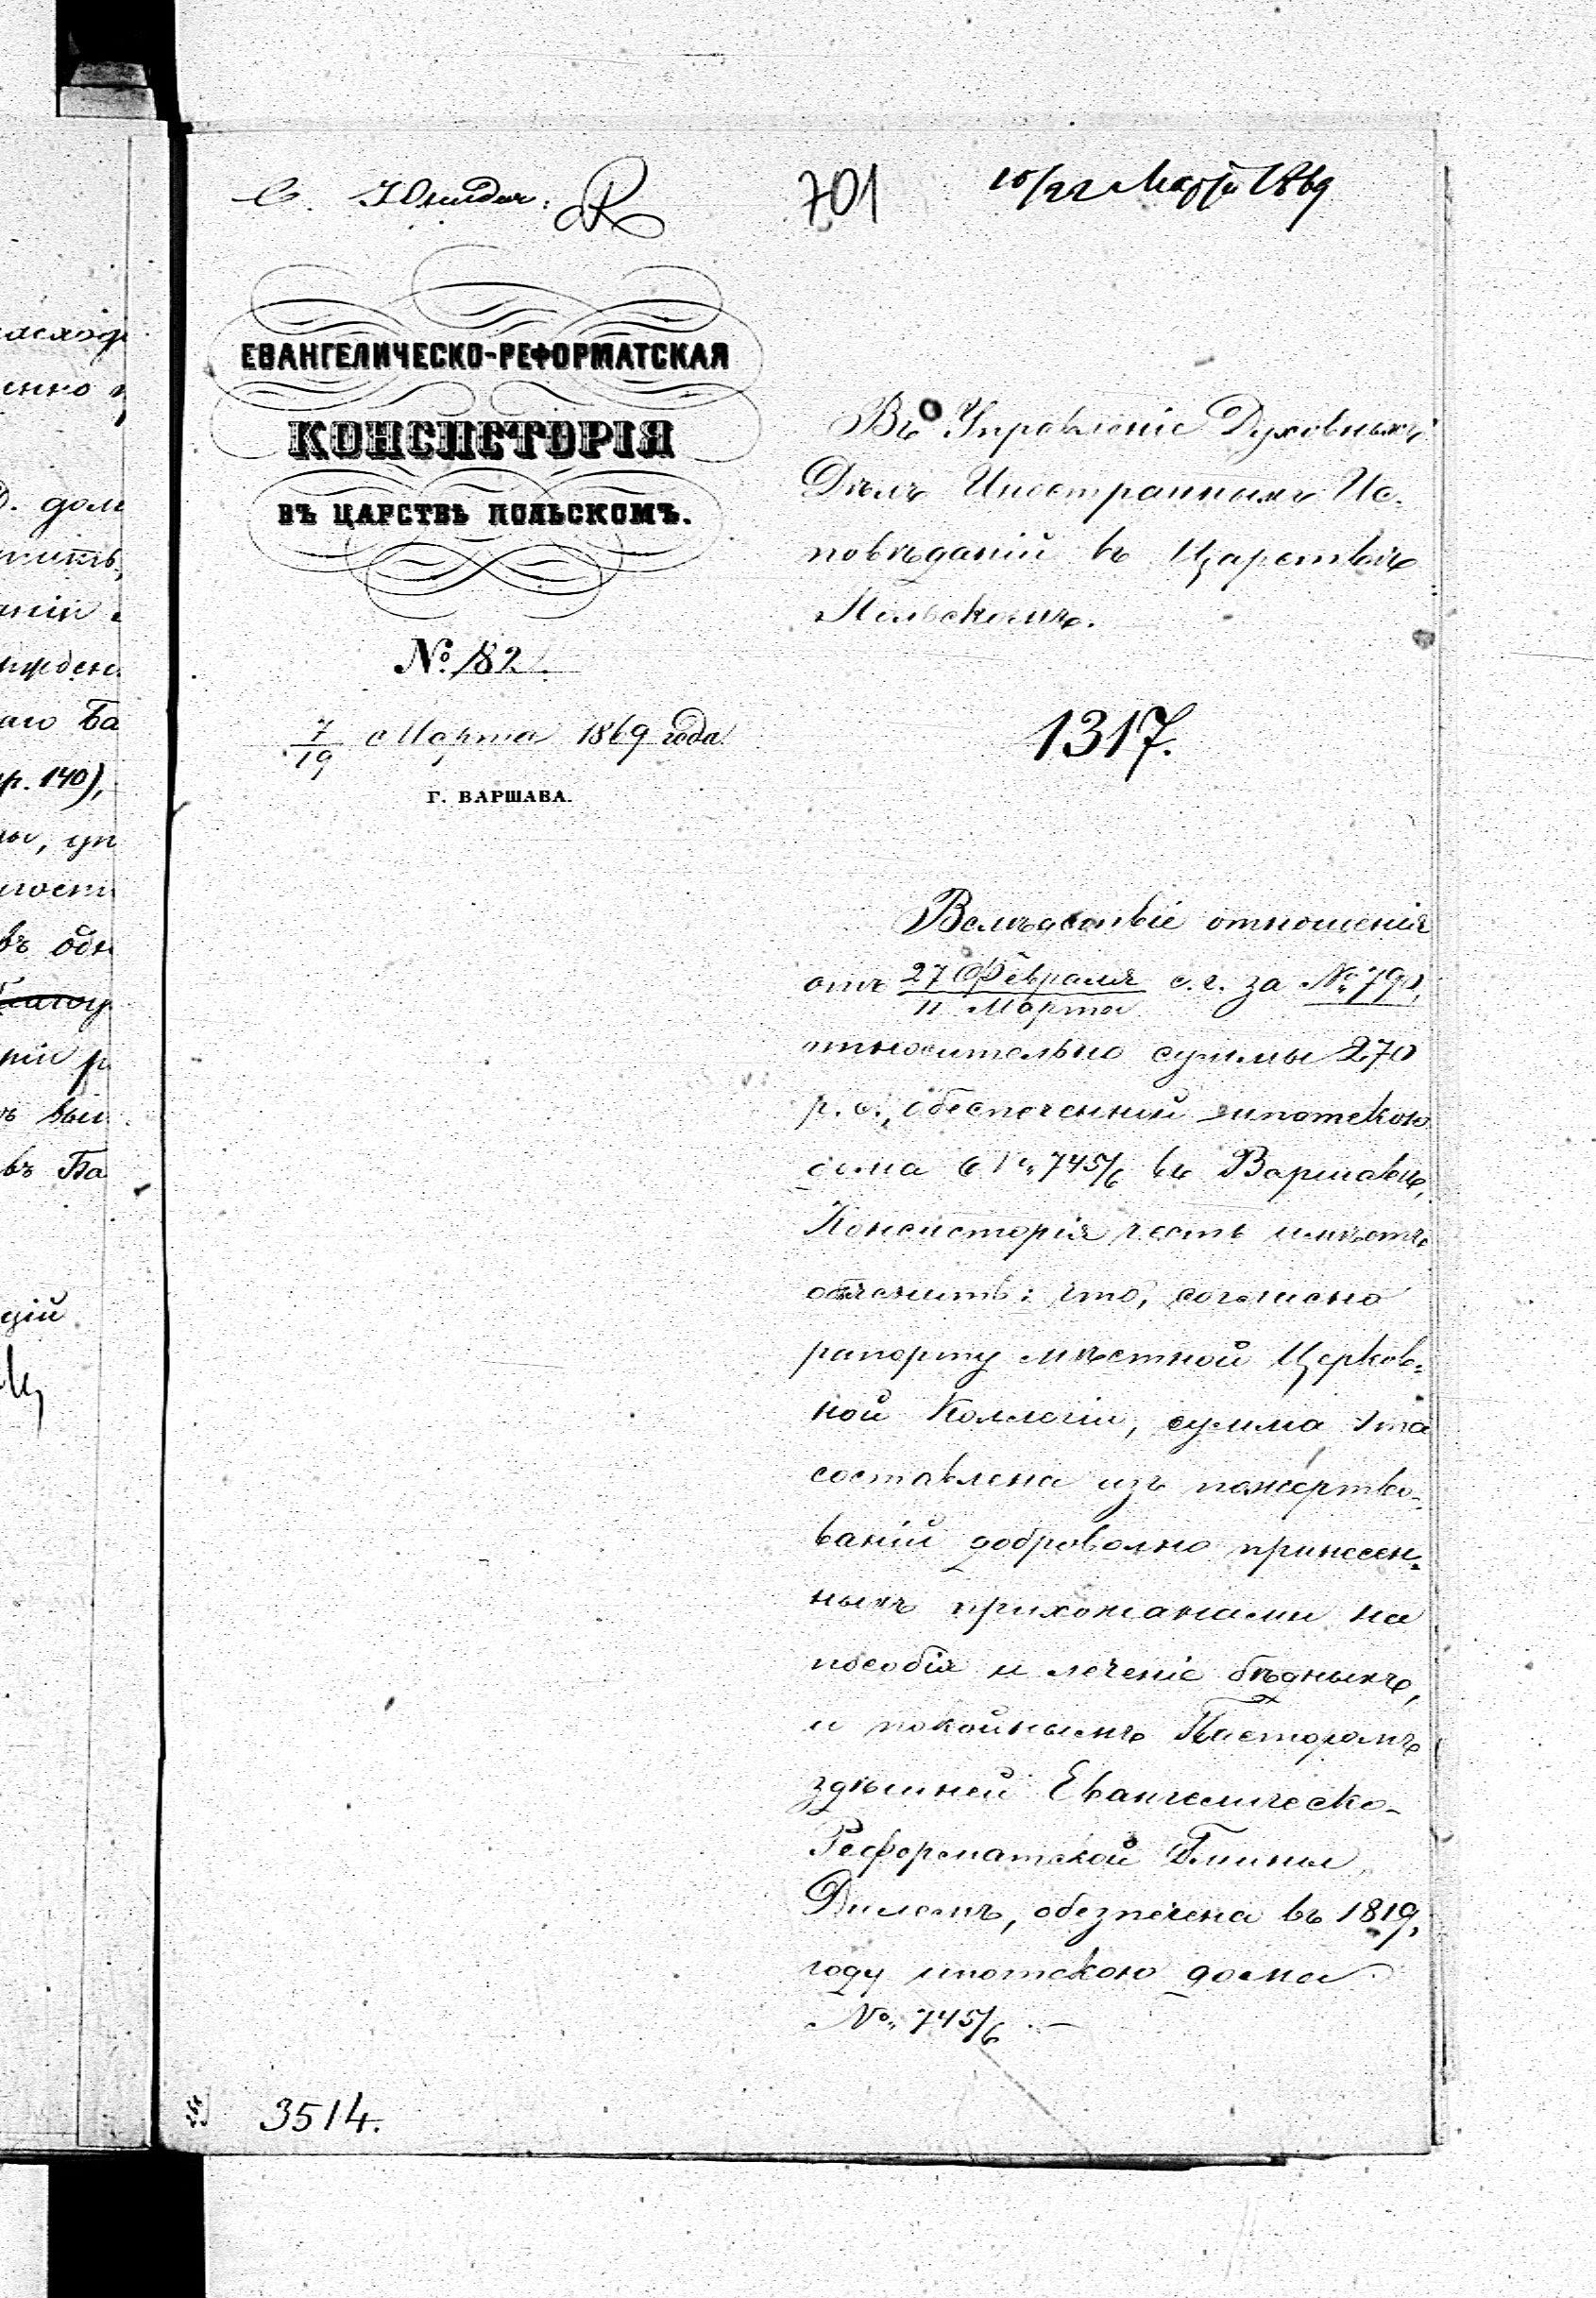 701
10/22 Марта 1869
ЕВАНГЕЛИЧЕСКО-РЕФОРМАТСКАЯ
КОНСИСТОРІЯ
ВЪ ЦАРСТВѢ ПОЛЬСКОМЪ.
№ 182.
7/19 Марта 1869 года.
Г. ВАРШАВА.
Въ Управленіе Духовныхъ
Дѣлъ Иностранныхъ Ис-
повѣданій въ Царствѣ
Польскомъ.
1317.
Вслѣдствіе отношенія
отъ 27 Февраля/11 Марта с. г. за № 790,
относительно суммы 270
р. с., обеспеченной ипотекою
дома № 745/6 въ Варшавѣ,
Консисторія честь имѣетъ
объяснить: что, согласно
рапорту мѣстной Церков-
ной Коллегіи, сумма эта
составлена изъ пожертво-
ваній добровольно принесен-
ныхъ прихожанами на
пособія и леченіе бѣдныхъ,
и покойнымъ Пасторомъ
здѣшней Евангелическо-
Реформатской Гмины
Дилемъ, обезпечена въ 1819,
году ипотекою дома
№ 745/6. —
3514.
дом
Ба
р. 140),
въ одн
въ Ба